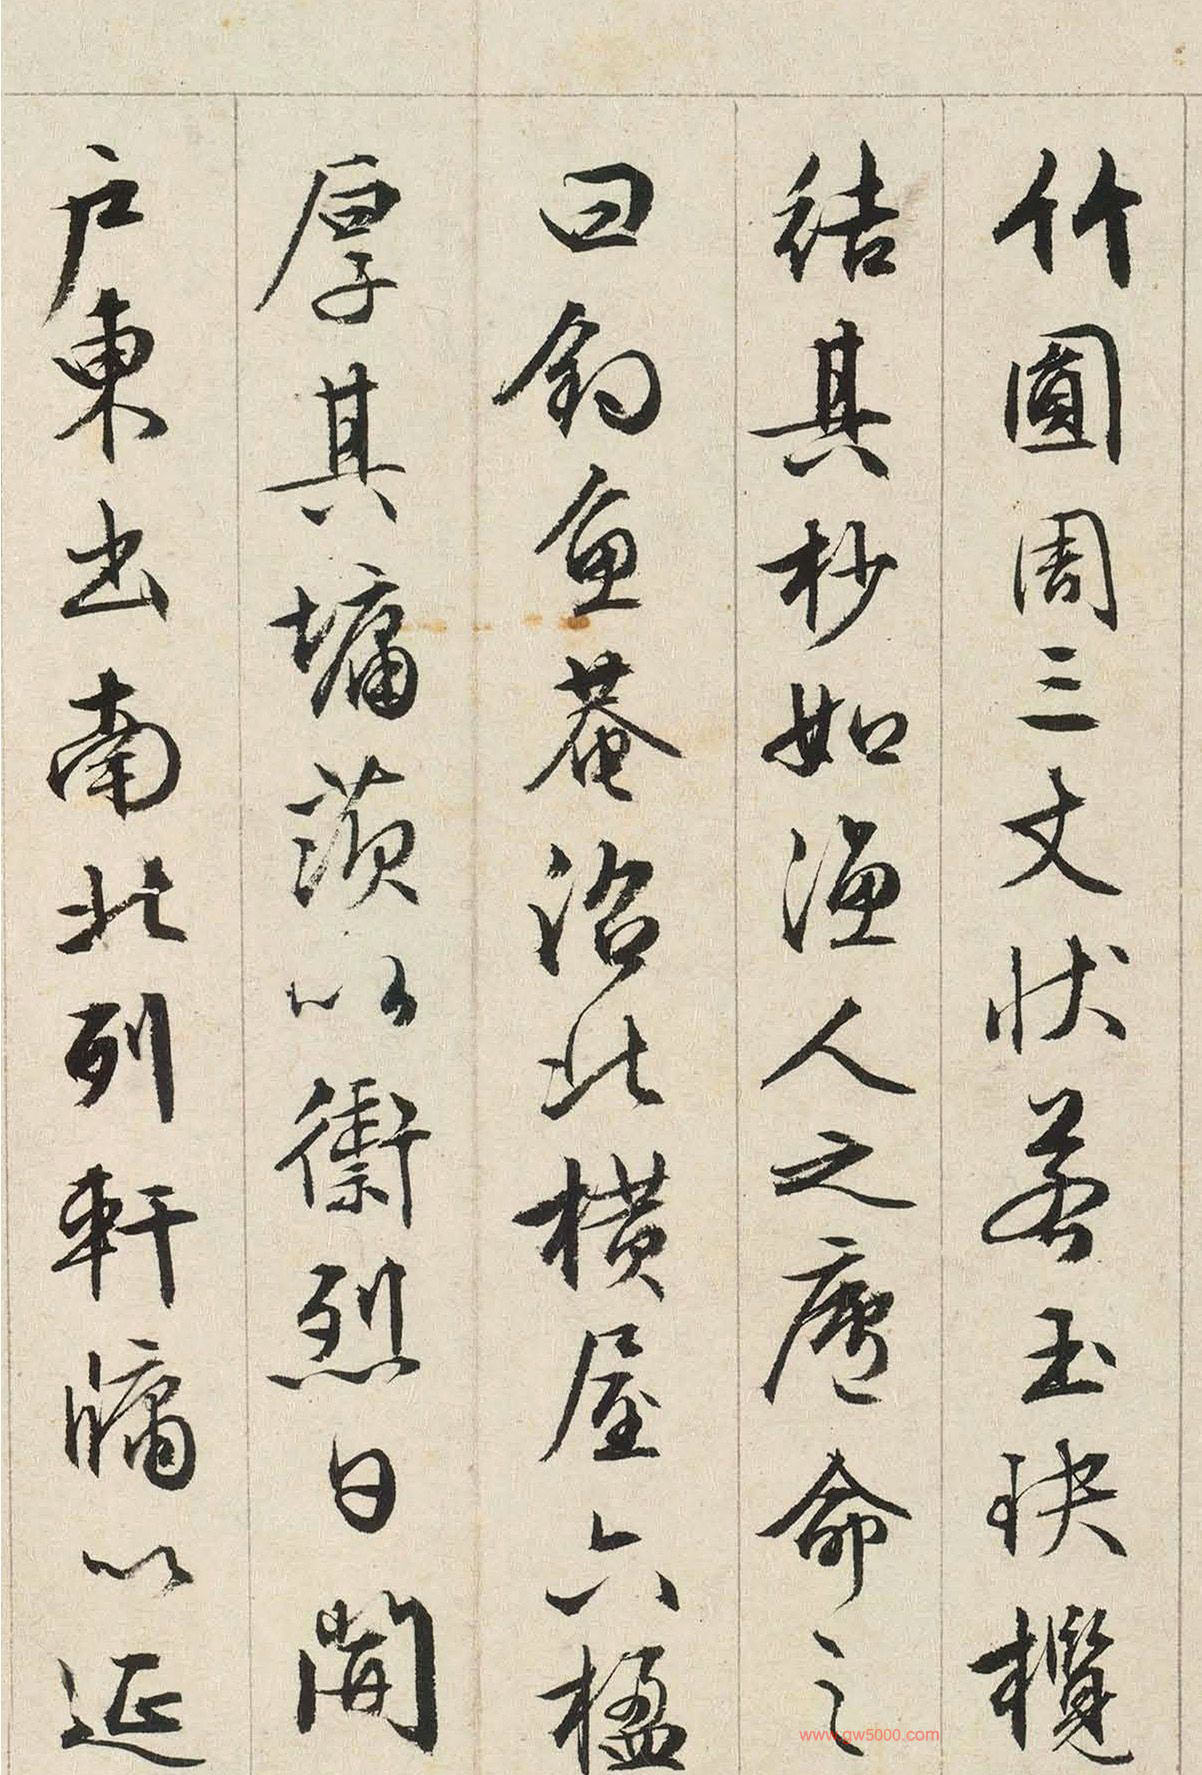 竹圓周三丈状若玉玦欖
結其杪如漁人之廬命之
曰釣魚菴沼北横屋六楹
厚其墉茨以禦烈日開
户東出南北列軒牖以延
www.gw5000.com